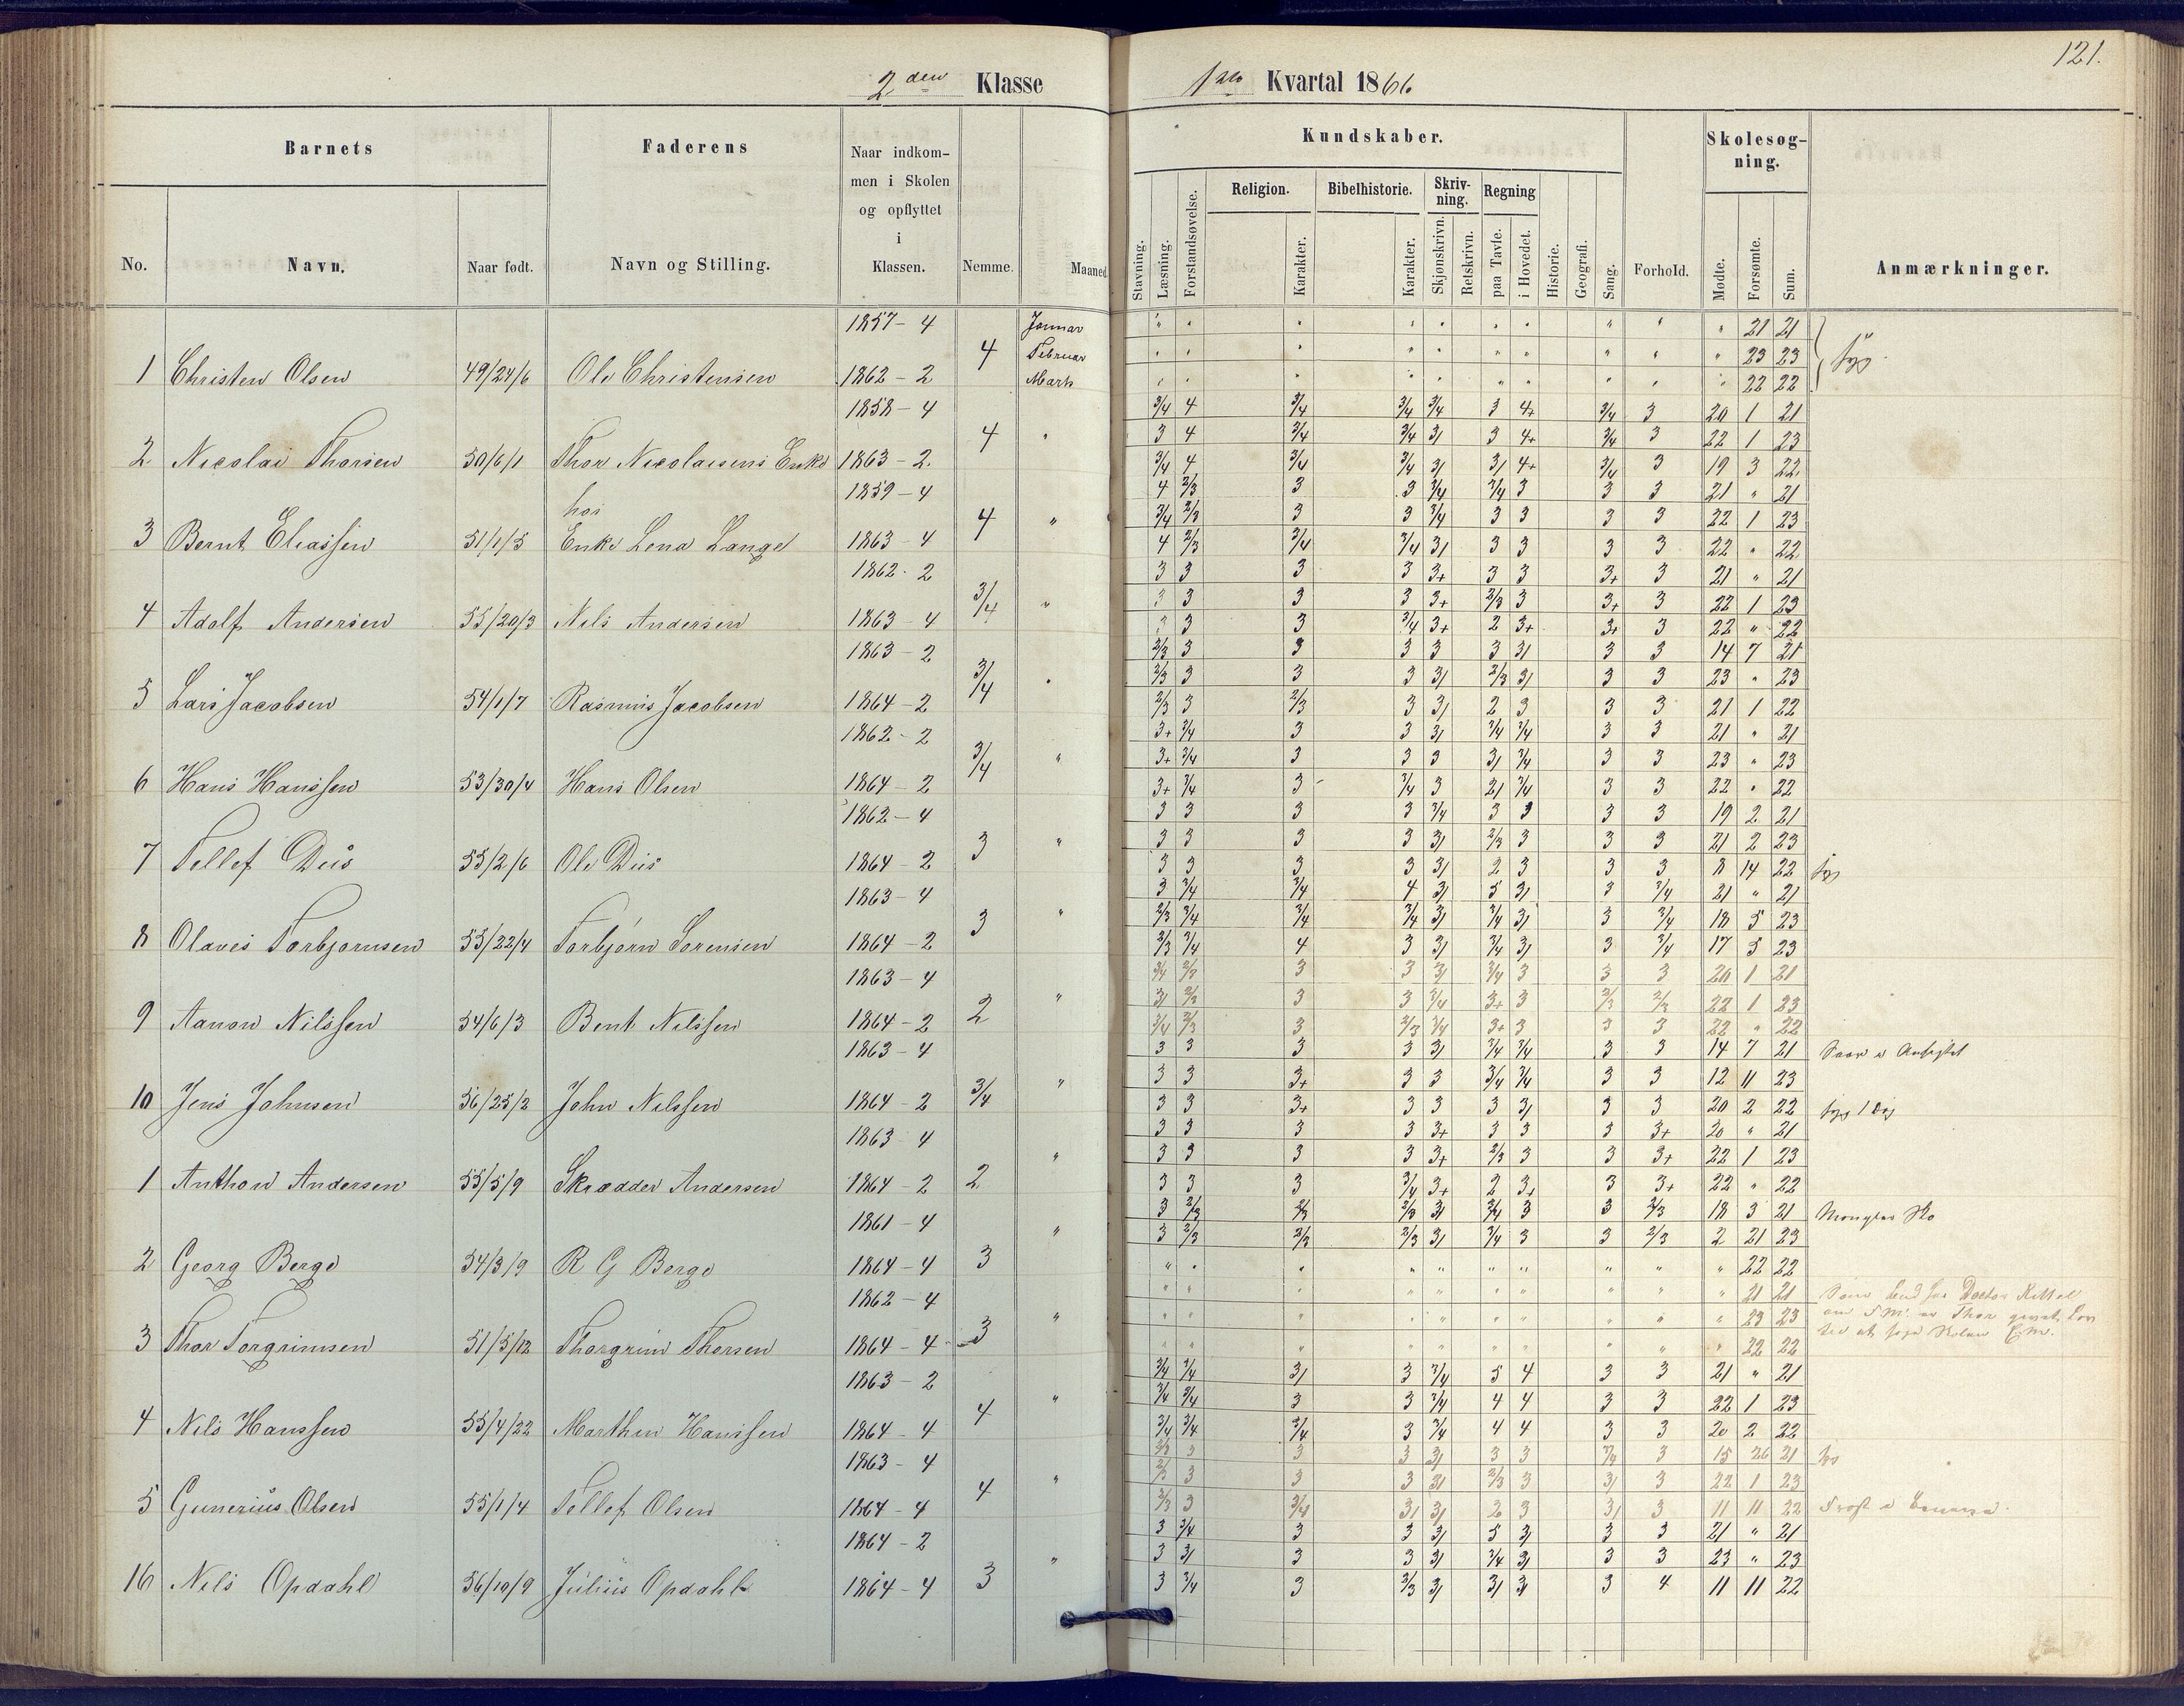 121.
2den Klasse 1ste Kvartal 1866
Barnets Faderens Naar indkommen i Skolen og opflyttet i Klassen. Nemme. Maaned Kundskaber. Forhold. Skolesøgning. Anmærkninger.
No. Navn. Naar født. Navn og Stilling.
Stavning. Læsning. Forstandsøvelse. Religion. Karakter. Bibelhistorie. Karakter. Skrivning. Skjønskrivn. Retskrivn. Regning paa Tavle. i Hovedet. Historie. Geografi. Sang. Mødte. Forsømte. Sum.
1857 - 4 Januar " " " " " " " " " " 21 21
4 Februar " " " " " " " " " " 23 23 syg
1 Christen Olsen 49/24/6 Ole Christensen 1862 - 2 Marts " " " " " " " " " " 22 22
1858 - 4 3/4 4 3/4 3/4 3/4 3 4+ 3/4 3 20 1 21
4 " 3 4 3/4 3/4 3/ 3 4+ 3/4 3 22 1 23
2 Nicolai Thorsen 50/6/1 Thor Nicolaisens Enke 1863 - 2 3/4 4 3/4 3/4 3/ 3/ 4+ 3/4 3 19 3 22
1859 - 4 4 2/3 3 3 3/4 3/4 3 3 3 21 " 21
hos 4 " 3/4 2/3 3 3 3/4 3 3 3 3 22 1 23
3 Bernt Eliassen 51/1/5 Enke Lena Lange 1863 - 4 4 2/3 3/4 3/4 3/ 3 3 3 3 22 " 22
1862 - 2 3 3 3 3 3+ 3 3 3+ 3 21 " 21
3/4 " 3 3 3 3 3+ 2/3 3 3+ 3 22 1 23
4 Adolf Andersen 55/20/3 Nils Andersen 1863 - 4 3 3 3 3/4 3+ 2 3+ 3+ 3 22 " 22
1863 - 2 2/3 3 3 3 3 3 3/ 3 3 14 7 21
3/4 " 2/3 3 3 3 3/ 2/3 3/ 3 3 23 " 23
5 Lars Jacobsen 54/1/7 Rasmus Jacobsen 1864 - 2 2/3 3 2/3 3 3/ 2 3 3 3 21 1 22
1862 - 2 3+ 3/4 3 3 3/ 3/4 3/4 3 3 21 " 21
3/4 " 3+ 3/4 3 3 3 3/ 3/4 3 3 23 " 23
6 Hans Hanssen 53/30/4 Hans Olsen 1864 - 2 3+ 3/4 3 3/4 3 2/ 3/4 3 3 22 " 22
1862 - 4 3 3 3 3 3/4 3 3 3 3 19 2 21
3 " 3 3 3 3 3/ 2/3 3 3 3 21 2 23
7 Tellef Dus 55/2/6 Ole Dus 1864 - 2 3 3 3 3 3/ 2 3 3 3 8 14 22 syg
1863 - 4 3 3/4 3/4 4 3/ 5 3/ 3 3/4 21 " 21
3 " 2/3 3/4 3/4 3/4 3/ 3/4 3/ 3 3/4 18 5 23
8 Olaves Torbjornsen 55/22/4 Torbjørn Sorensen 1864 - 2 2/3 3/4 4 3 3/ 3/4 3/ 3 3/4 17 5 23
1863 - 4 3/4 2/3 3 3 3/ 3/4 3 3 3 20 1 21
2 " 3/ 2/3 3 3 3/4 3+ 3 2/3 2/3 22 1 23
9 Aanon Nilssen 54/6/3 Bent Nilssen 1864 - 2 3/4 2/3 3 2/3 3/4 3+ 3 3 3 22 " 22
1863 - 4 3 3 3 3 3/ 3/4 3/4 3 3 14 7 21 Saar i Ansigtet
3/4 " 3 3 3+ 3 3 3/4 3/4 3 3 12 11 23
10 Jens Johnsen 56/25/2 John Nilssen 1864 - 2 3 3 3+ 3 3 3 3/ 3 3 20 2 22 syg 1 Dag
1863 - 4 3 3 3 3 3+ 3 3 3 3+ 20 " 21
2 " 3 3 3 3 3+ 2/3 3 3 3+ 22 1 23
1 Anthon Andersen 55/5/9 Skrædder Andersen 1864 - 2 3 3 3 3/4 3+ 2 3+ 3 3+ 22 " 22
1861 - 4 3 2/3 2/3 2/3 3/ 3/4 3 3 2/3 18 3 21 Mangler Sko
3 " 3 2/3 2/3 2/3 3/ 3/4 3 3 2/3 2 21 23
2 Georg Berge 54/3/9 R G Berge 1864 - 4 " " " " " " " " " " 22 22
1862 - 4 " " " " " " " " " " 21 21 Doctor Kittel
3 " " " " " " " " " " " 23 23 Thor
3 Thor Torgrimsen 51/5/12 Thorgrim Thorsen 1864 - 4 " " " " " " " " " " 22 22 at søge Skolen
1863 - 2 3/4 3/4 3/ 3 3/4 5 4 3 3 21 " 21
4 " 3/4 3/4 3 3 3/4 4 4 3 3 22 1 23
4 Nils Hanssen 55/4/22 Marthin Hanssen 1864 - 4 3/4 3/4 3/4 3 3/4 4 4 3 3 20 2 22
1863 - 4 2/3 3 3 3 3/ 3 3 3/4 3 15 26 21 syg
4 " 2/3 3 3 3 3/ 2/3 3 3/ 3 22 1 23
5 Gunerius Olsen 55/1/4 Tellef Olsen 1864 - 4 2/3 3 3/4 3/ 3/ 2 3 3/ 3 11 11 22 Frost i
1864 - 2 3 3/4 3 3 3/ 5 3/ 3 3 21 " 21
3 " 3 3/ 3 3 3/ 3/4 3/ 3 3 23 " 23
16 Nils Opdahl 56/10/9 Julius Opdahl 1864 - 4 3 3/4 3 2/3 3/ 3/ 3/ 3 4 11 11 22